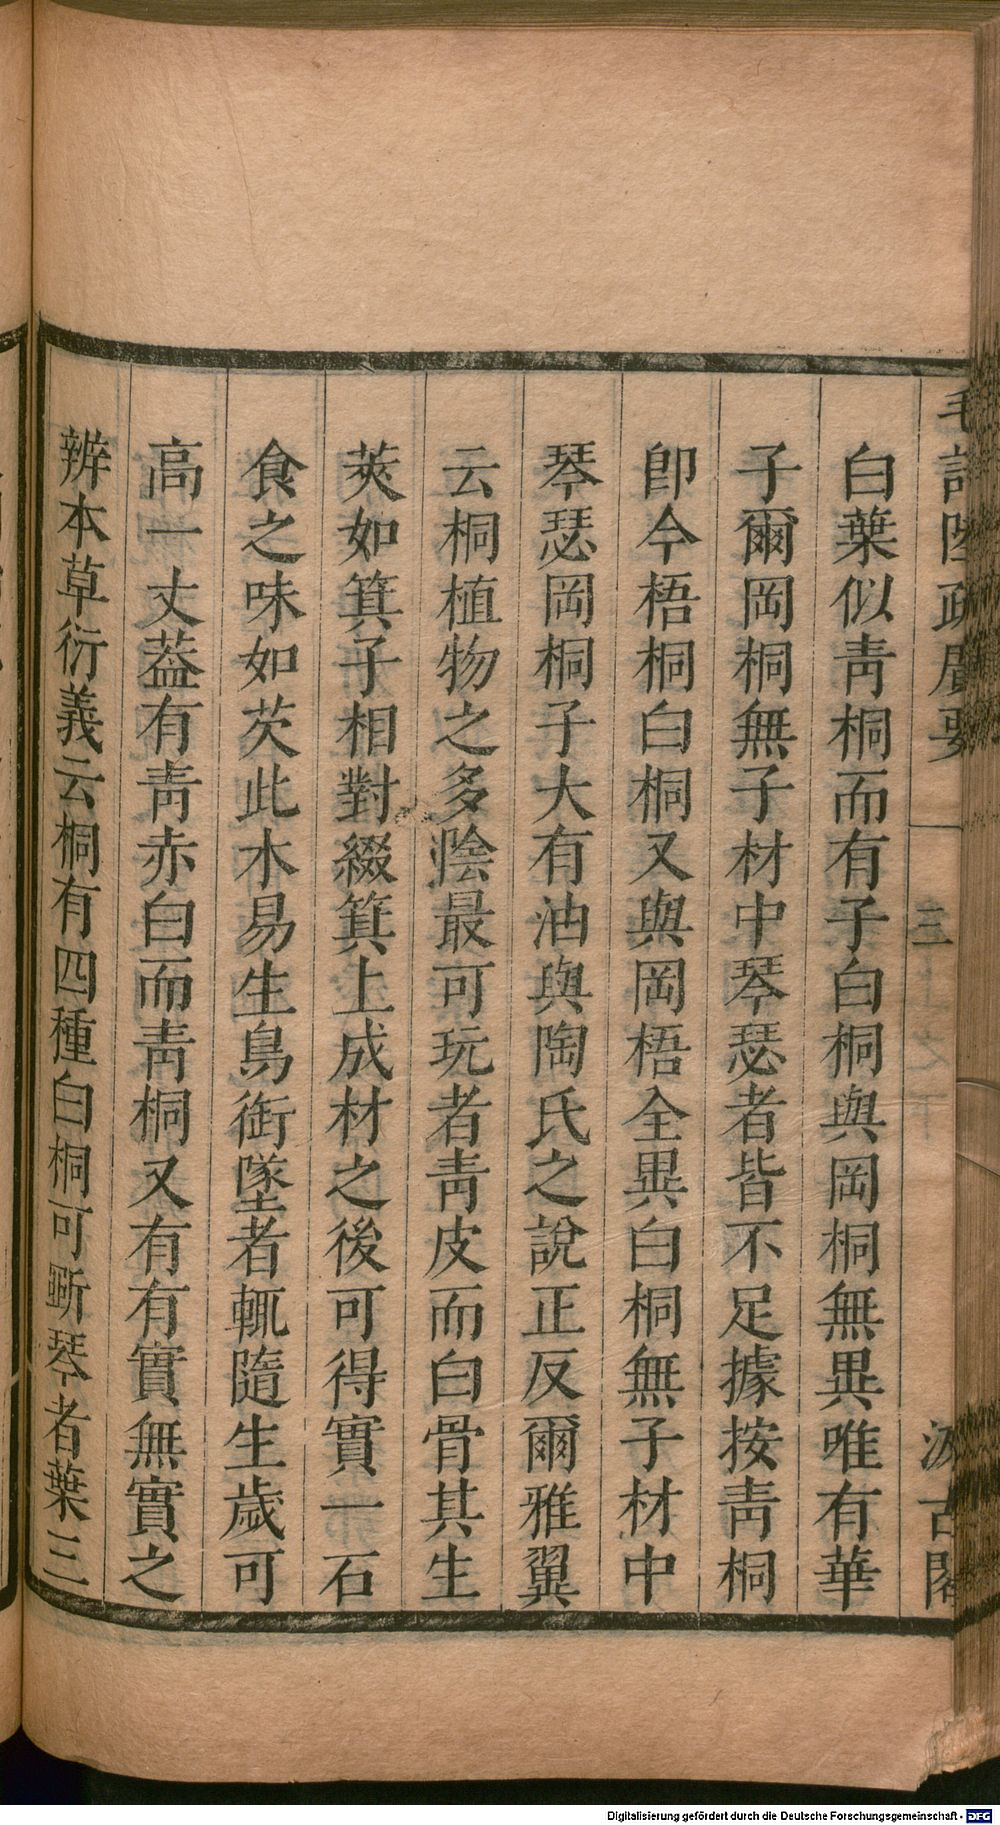 毛詩陸疏廣要
三
汲古閣
白葉似靑桐而有子白桐與岡桐無異唯有華
子爾岡桐無子材中琴瑟者皆不足據按靑桐
卽今梧桐白桐又與岡梧全異白桐無子材中
琴瑟岡桐子大有油與陶氏之說正反爾雅翼
云桐植物之多陰最可玩者靑皮而白骨其生
莢如箕子相對綴箕上成材之後可得實一石
食之味如芡此木易生鳥銜墜者輒隨生歲可
高一丈葢有靑赤白而靑桐又有有實無實之
辨本草衍義云桐有四種白桐可斲琴者葉三
Digitalisierung gefördert durch die Deutsche Forschungsgemeinschaft - DFG